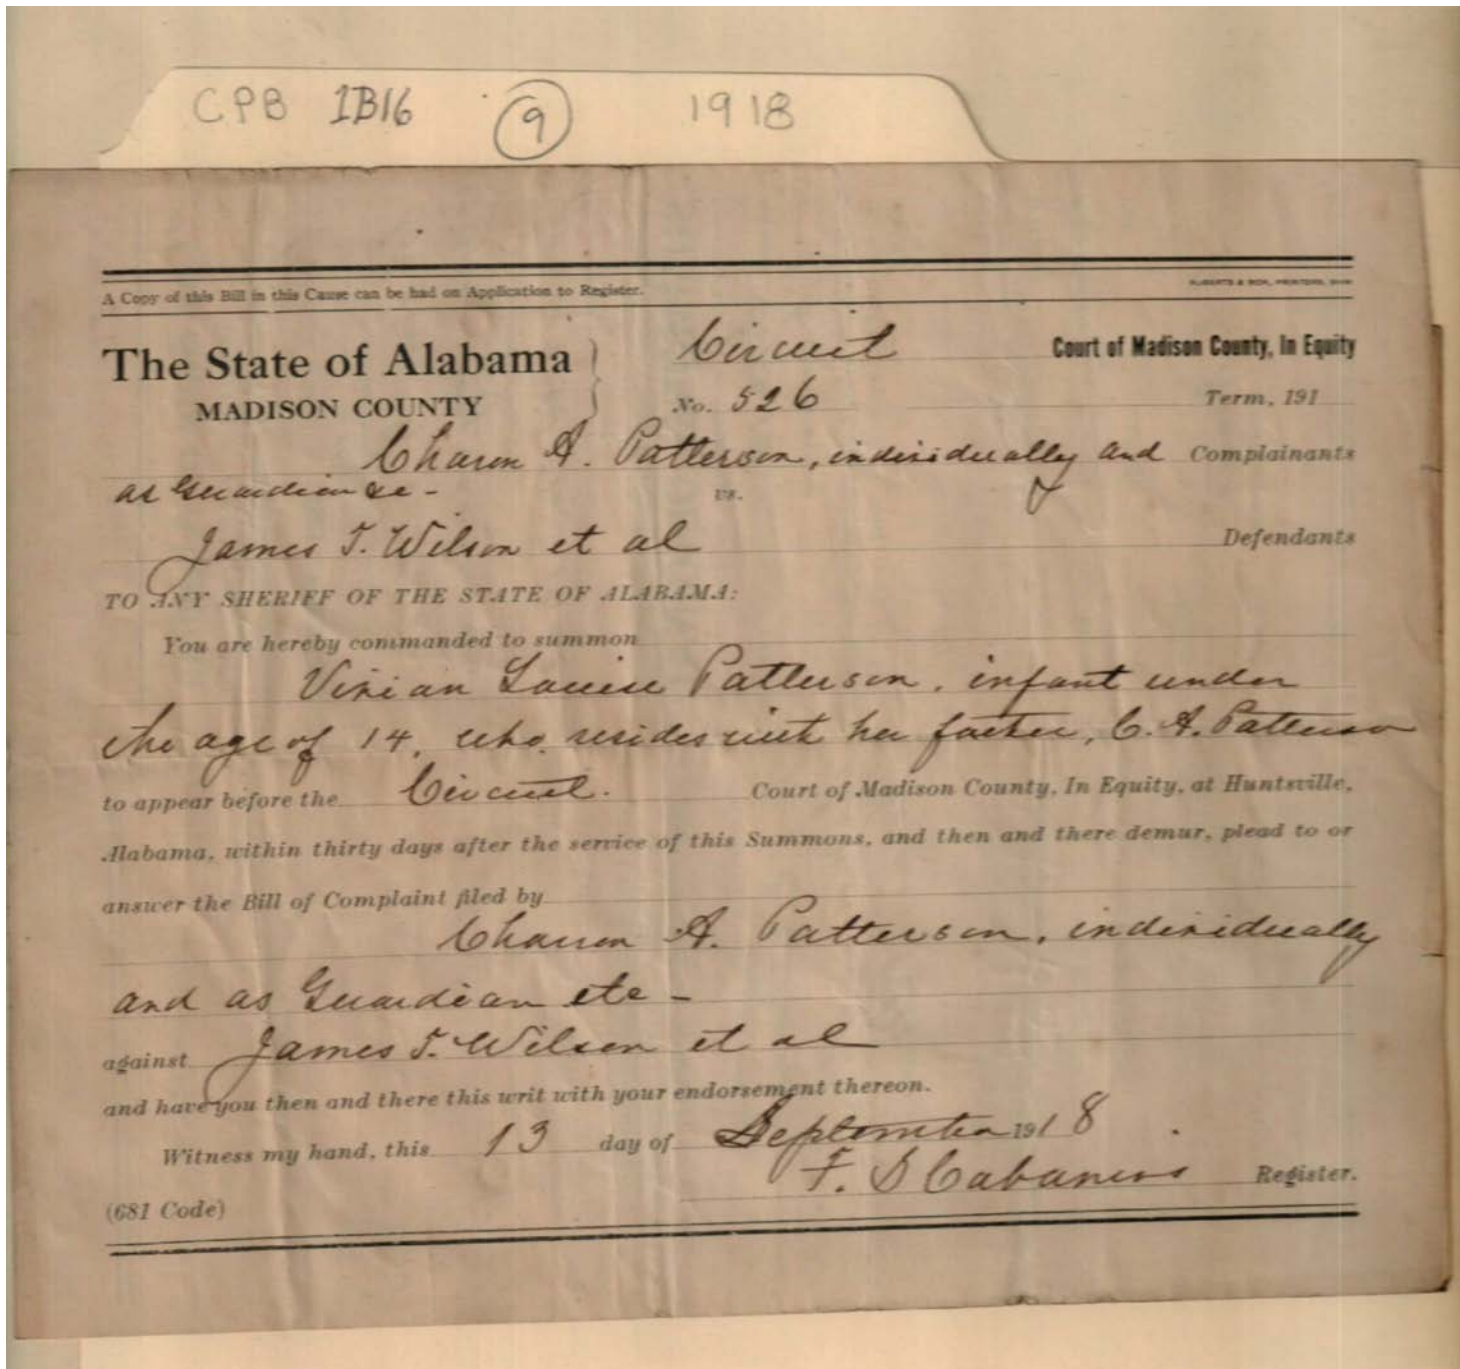 CPB IB16 9 1918
A Copy of this Bill in this Cause can be had on Application to Register.
The State of Alabama
MADISON COUNTY
Circuit Court of Madison County, In Equity
No. 526 Term, 191
Charon A. Patterson, individually and Complainants
as Guardian &c -
vs.
James T. Wilson et al Defendants
TO ANY SHERIFF OF THE STATE OF ALABAMA:
You are hereby commanded to summon
Vivian Louise Patterson, infant under
the age of 14, who resides with her father, C. A. Patterson
to appear before the Circuit. Court of Madison County, In Equity, at Huntsville,
Alabama, within thirty days after the service of this Summons, and then and there demur, plead to or
answer the Bill of Complaint filed by
Charon A. Patterson, individually
and as Guardian etc -
against James T. Wilson et al
and have you then and there this writ with your endorsement thereon.
Witness my hand, this 13 day of September 1918
F. D Cabaniss Register.
(681 Code)